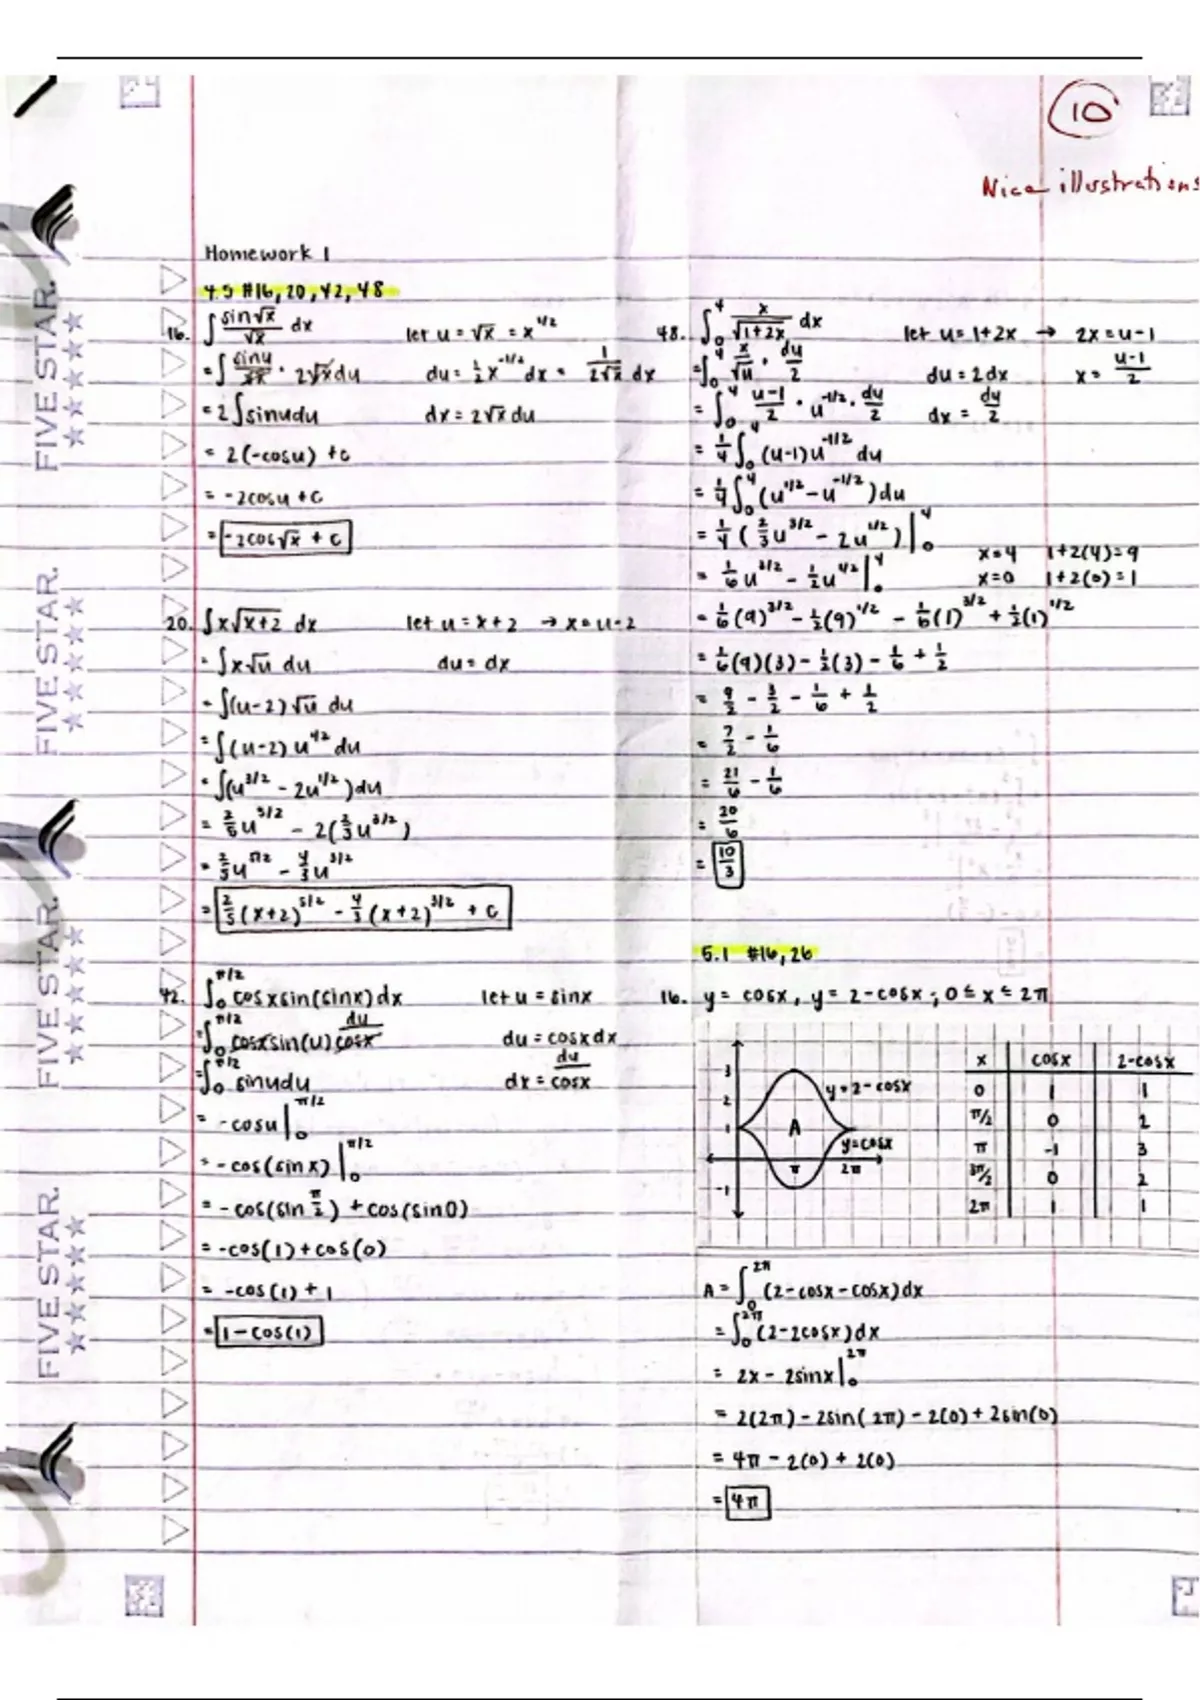 10
Nice illustrations
Homework 1
4.5 #16, 20, 42, 48
16. ∫ sin√x/√x dx let u = √x = x^1/2
= ∫ sinu/√x · 2√x du du = 1/2 x^-1/2 dx = 1/2√x dx
= 2∫sinudu dx = 2√x du
= 2(-cosu) +c
= -2cosu + C
= -2cos√x + C
20. ∫x√x+2 dx let u = x+2 → x = u-2
= ∫x√u du du = dx
= ∫(u-2)√u du
= ∫(u-2) u^1/2 du
= ∫(u^3/2 - 2u^1/2)du
= 2/5 u^5/2 - 2(2/3 u^3/2)
= 2/5 u^5/2 - 4/3 u^3/2
= 2/5 (x+2)^5/2 - 4/3 (x+2)^3/2 + C
42. ∫0^π/2 cosxsin(sinx)dx let u = sinx
= ∫0^π/2 cosxsin(u) du/cosx du = cosxdx
= ∫0^π/2 sinudu dx = du/cosx
= -cosu |0^π/2
= -cos(sinx) |0^π/2
= -cos(sin π/2) + cos(sin0)
= -cos(1) + cos(0)
= -cos(1) + 1
= 1 - cos(1)
48. ∫0^4 x/√1+2x dx let u = 1+2x → 2x = u-1
= ∫0^4 x/√u · du/2 du = 2dx x = u-1/2
= ∫0^4 u-1/2 · u^-1/2 · du/2 dx = du/2
= 1/4 ∫0^4 (u-1)u^-1/2 du
= 1/4 ∫0^4 (u^1/2 - u^-1/2)du
= 1/4 (2/3 u^3/2 - 2u^1/2) |0^4
x=4 1+2(4)=9
= 1/6 u^3/2 - 1/2 u^1/2 |0^4 x=0 1+2(0)=1
= 1/6 (9)^3/2 - 1/2 (9)^1/2 - 1/6 (1)^3/2 + 1/2 (1)^1/2
= 1/6 (9)(3) - 1/2 (3) - 1/6 + 1/2
= 9/2 - 3/2 - 1/6 + 1/2
= 7/2 - 1/6
= 21/6 - 1/6
= 20/6
= 10/3
5.1 #16, 26
16. y = cosx, y = 2-cosx; 0 ≤ x ≤ 2π
3
2
1
-1
y=2-cosx
A
y=cosx
π 2π
x cosx 2-cosx
0 1 1
π/2 0 2
π -1 3
3π/2 0 2
2π 1 1
A = ∫0^2π (2-cosx-cosx)dx
= ∫0^2π (2-2cosx)dx
= 2x - 2sinx |0^2π
= 2(2π) - 2sin(2π) - 2(0) + 2sin(0)
= 4π - 2(0) + 2(0)
= 4π
FIVE STAR.
FIVE STAR.
FIVE STAR.
FIVE STAR.